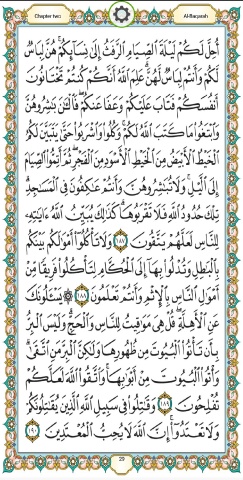 Chapter two Al-Baqarah
أُحِلَّ لَكُمْ لَيْلَةَ ٱلصِّيَامِ ٱلرَّفَثُ إِلَىٰ نِسَآئِكُمْ هُنَّ لِبَاسٌ
لَّكُمْ وَأَنتُمْ لِبَاسٌ لَّهُنَّ عَلِمَ ٱللَّهُ أَنَّكُمْ كُنتُمْ تَخْتَانُونَ
أَنفُسَكُمْ فَتَابَ عَلَيْكُمْ وَعَفَا عَنكُمْ فَٱلْـَٰٔنَ بَـٰشِرُوهُنَّ
وَٱبْتَغُوا۟ مَا كَتَبَ ٱللَّهُ لَكُمْ وَكُلُوا۟ وَٱشْرَبُوا۟ حَتَّىٰ يَتَبَيَّنَ لَكُمُ
ٱلْخَيْطُ ٱلْأَبْيَضُ مِنَ ٱلْخَيْطِ ٱلْأَسْوَدِ مِنَ ٱلْفَجْرِ ثُمَّ أَتِمُّوا۟ ٱلصِّيَامَ
إِلَى ٱلَّيْلِ وَلَا تُبَـٰشِرُوهُنَّ وَأَنتُمْ عَـٰكِفُونَ فِى ٱلْمَسَـٰجِدِ
تِلْكَ حُدُودُ ٱللَّهِ فَلَا تَقْرَبُوهَا كَذَٰلِكَ يُبَيِّنُ ٱللَّهُ ءَايَـٰتِهِۦ
لِلنَّاسِ لَعَلَّهُمْ يَتَّقُونَ ١٨٧ وَلَا تَأْكُلُوٓا۟ أَمْوَٰلَكُم بَيْنَكُم
بِٱلْبَـٰطِلِ وَتُدْلُوا۟ بِهَآ إِلَى ٱلْحُكَّامِ لِتَأْكُلُوا۟ فَرِيقًا مِّنْ
أَمْوَٰلِ ٱلنَّاسِ بِٱلْإِثْمِ وَأَنتُمْ تَعْلَمُونَ ١٨٨ ۞ يَسْـَٔلُونَكَ
عَنِ ٱلْأَهِلَّةِ قُلْ هِىَ مَوَٰقِيتُ لِلنَّاسِ وَٱلْحَجِّ وَلَيْسَ ٱلْبِرُّ
بِأَن تَأْتُوا۟ ٱلْبُيُوتَ مِن ظُهُورِهَا وَلَـٰكِنَّ ٱلْبِرَّ مَنِ ٱتَّقَىٰ
وَأْتُوا۟ ٱلْبُيُوتَ مِنْ أَبْوَٰبِهَا وَٱتَّقُوا۟ ٱللَّهَ لَعَلَّكُمْ
تُفْلِحُونَ ١٨٩ وَقَـٰتِلُوا۟ فِى سَبِيلِ ٱللَّهِ ٱلَّذِينَ يُقَـٰتِلُونَكُمْ
وَلَا تَعْتَدُوٓا۟ إِنَّ ٱللَّهَ لَا يُحِبُّ ٱلْمُعْتَدِينَ ١٩٠
29